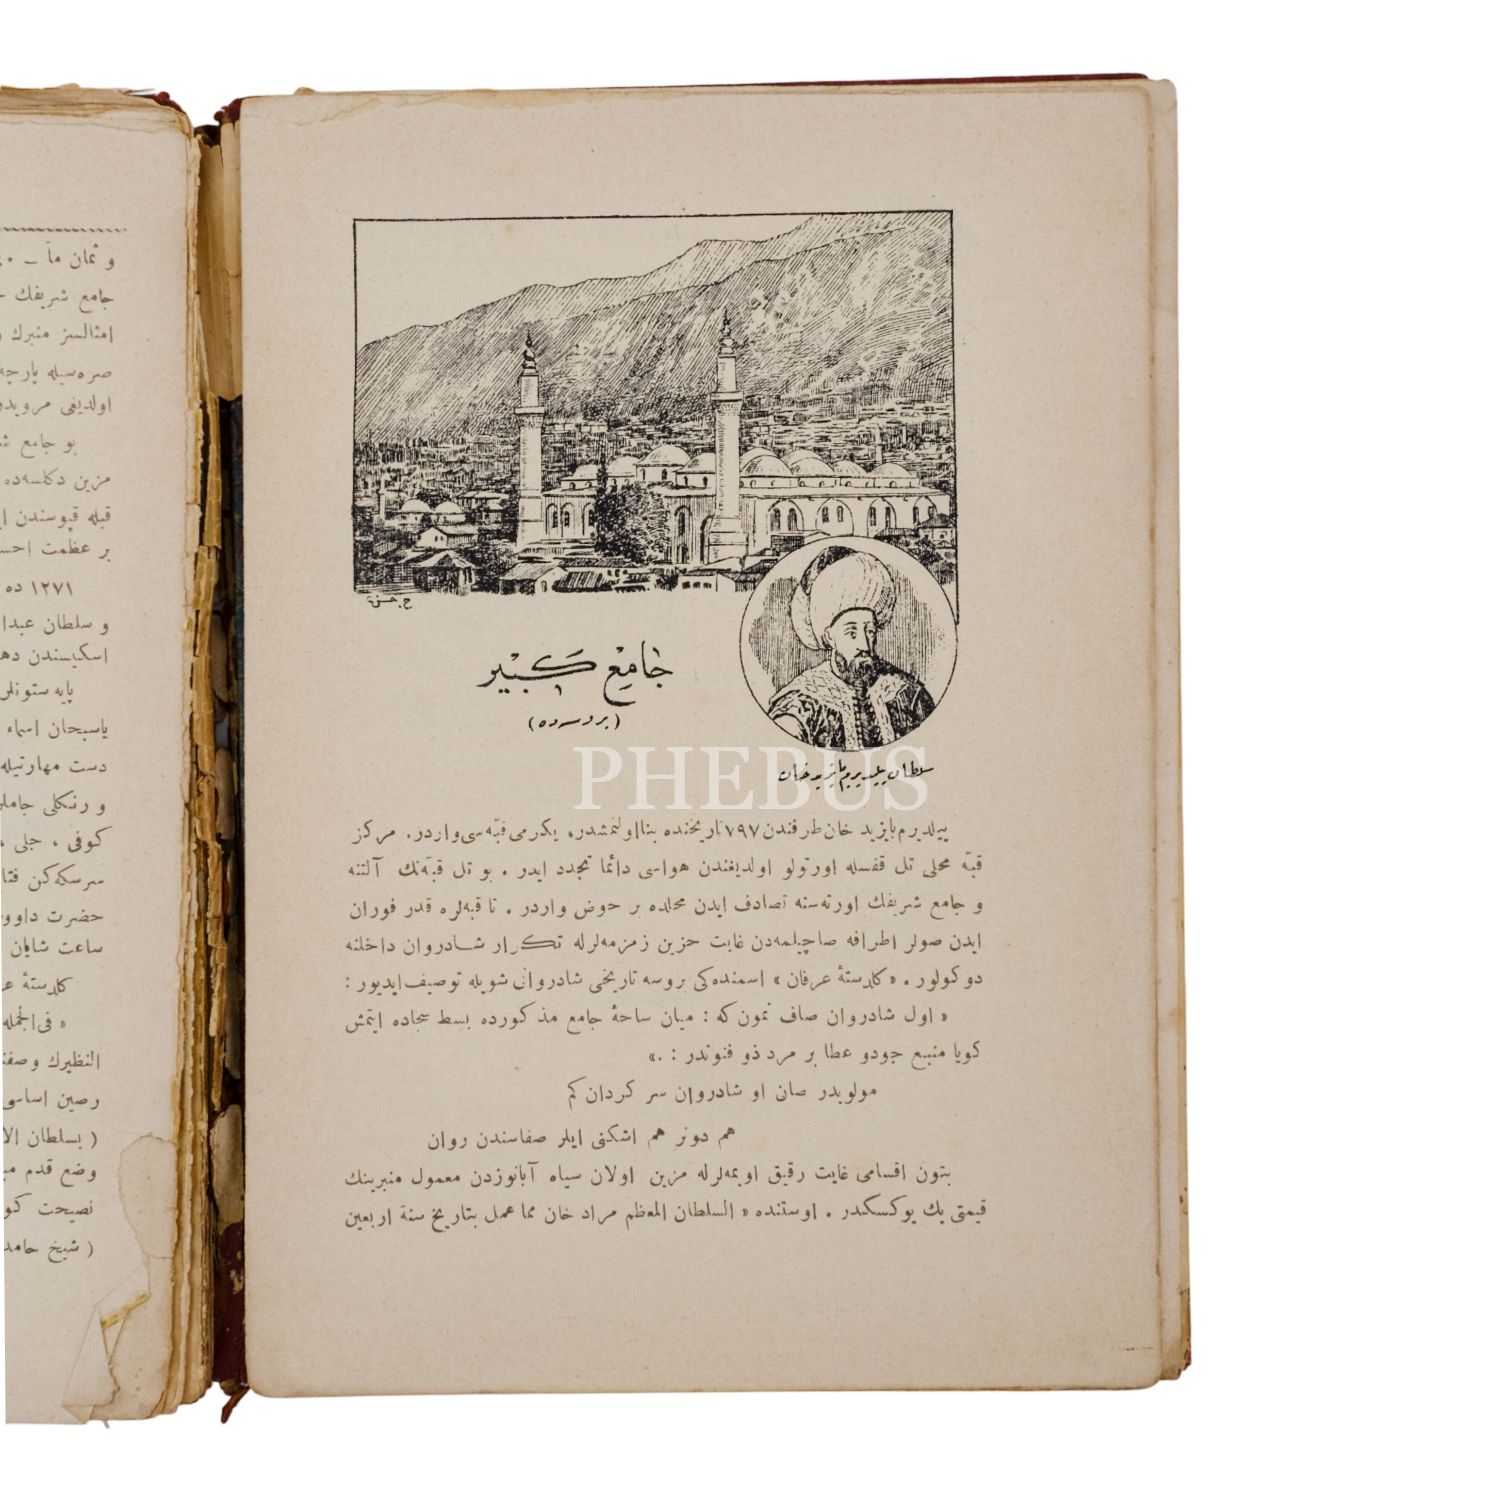 ح. حسن
جامع كبير
(بروسه‌ده)
سلطان ييلديرم بايزيد خان
PHEBUS
ييلديرم بايزيد خان طرفندن ٧٩٧ تاريخنده بنا اولنمشدر، يكرمى قبّه‌سى واردر. مركز
قبّه محلى تل قفسله اورتولو اولديغندن هواسى دائما تجدد ايدر. بو تل قبّه‌نك آلتنه
و جامع شريفك اورته‌سنه تصادف ايدن محلده بر حوض واردر. تا قبه‌لره قدر فوران
ايدن صولر اطرافه صاچيلمه‌دن غايت حزين زمزمه‌لرله تكرار شادروان داخلنه
دوكولور. «كلدستۀ عرفان» اسمنده‌كى بروسه تاريخى شادروانى شويله توصيف ايديور:
« اول شادروان صاف نمون كه: ميان ساحۀ جامع مذكورده بسط سجاده ايتمش
كويا منبع جودو عطا بر مرد ذو فنوندر: .»
مولويدر صان او شادروان سر كردان كم
هم دونر هم اشكنى ايلر صفاسندن روان
بتون اقسامى غايت رقيق اويمه‌لرله مزين اولان سياه آبانوزدن معمول منبرينك
قيمتى پك يوكسكدر. اوستنده «السلطان المعظم مراد خان مما عمل بتاريخ سنة اربعين
و ثمان مأ — ٠
جامع شريفك
امثالسز منبرك
صره‌سيله پارچه
اولديغى مرويدر
بو جامع
مزين دكلسه‌ده
قبله قپوسندن
بر عظمت احس
١٢٧١ ده
و سلطان عبدا
اسكيسندن دها
پايه ستونلر
ياسبحان اسماء
دست مهارتيله
و رنكلى جاملر
كوفى ، جلى ،
سرسكه‌كن فتا
حضرت داوو
ساعت شايان
كلدستۀ عر
« فى الجمله
النظيرك وصفـ
رصين اساسى
( بسلطان الا
وضع قدم
نصيحت كو
( شيخ حامد